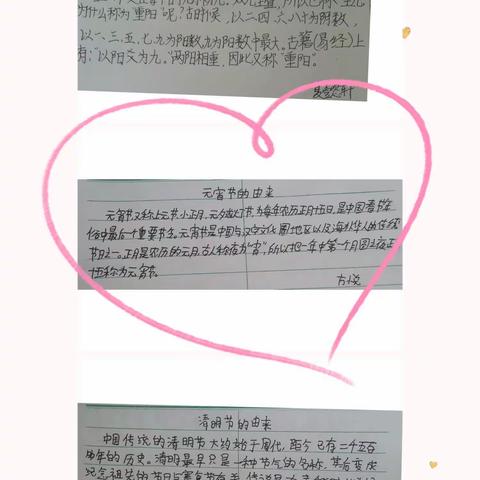 为什么称为"重阳"呢?古时候,以二、四、六、八、十为阴数,
以一、三、五、七、九为阳数,九为阳数中最大。古籍《易经》上
有:"以阳爻为九。"两阳相重,因此又称"重阳"。
元宵节的由来
元宵节又称上元节、小正月、元夕或灯节,为每年农历正月十五日,是中国春节年
俗中最后一个重要节令。元宵节是中国与汉字文化圈地区以及海外华人的传统
节日之一。正月是农历的元月,古人称夜为"宵",所以把一年中第一个月圆之夜正月十
五称为元宵节。
方悦
清明节的由来
中国传统的清明节大约始于周代,距今已有二千五百
多年的历史。清明最早只是一种节气的名称,其后变成
纪念祖先的节日与寒食节有关